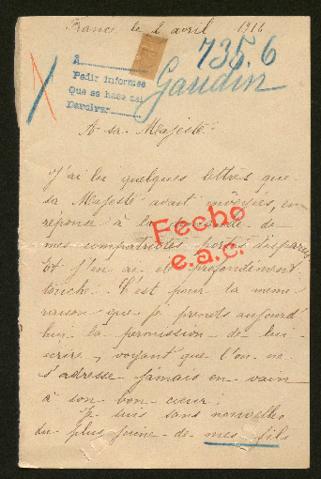 France le 2 avril 1916
735.6
Gaudin
A
Pedir informes
Que se hace del
Decirlo
A sa Majesté.
J'ai lu quelques lettres que
sa Majesté avait envoyées, en
réponse à la demande de
mes compatriotes portés disparus
et j'en ai été profondément
touché. C'est pour la même
raison que je prends aujourd'
hui la permission de lui
écrire, voyant que l'on ne
s'adresse jamais en vain
à son bon cœur.
Fecho
e.a.c.
Je suis sans nouvelles
du plus jeune de mes fils